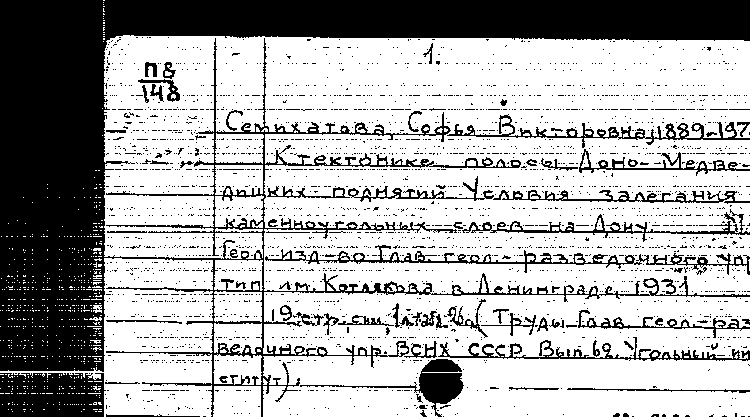 1.
П8
148
Семихатова, Софья Викторовна, 1889-197
К тектонике полосы Доно-Медве-
дицких поднятий Условия залегания
каменноугольных слоев на Дону.
Геол. изд-во Глав. геол.-разведочного упр
тип им. Котлякова в Ленинграде, 1931.
19 стр. (Труды Глав. геол.-раз
ведочного упр. ВСНХ СССР. Вып. 62. Угольный ин
ститут).